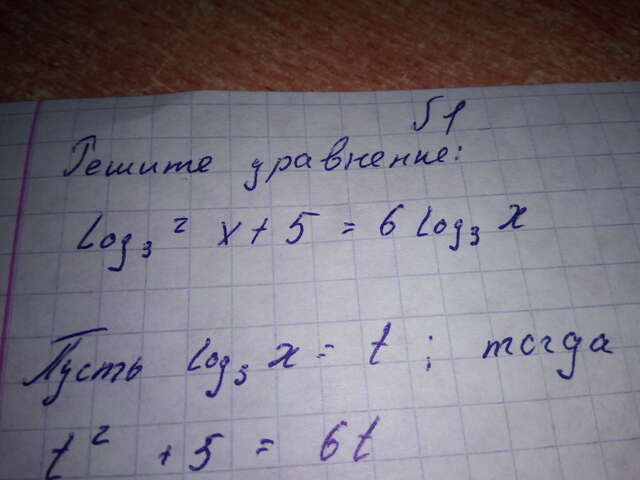 51
Решите уравнение:
log₃² x + 5 = 6 log₃ x
Пусть log₃ x = t ; тогда
t² + 5 = 6t